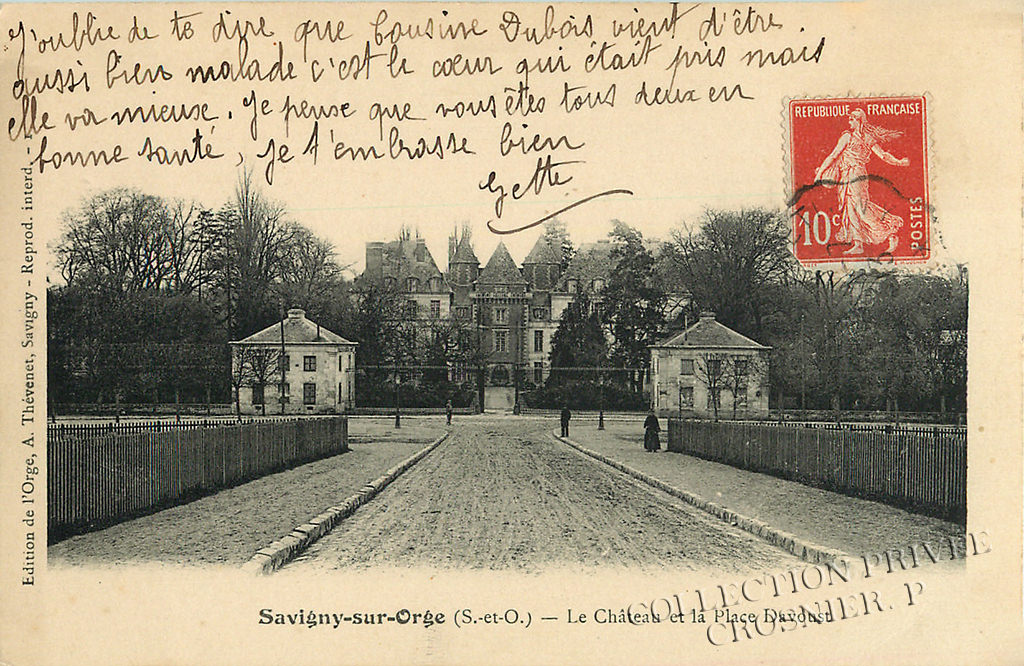 J'oublie de te dire que Cousine Dubois vient d'être
aussi bien malade c'est le cœur qui était pris mais
elle va mieuse. Je pense que vous êtes tous deux en
bonne santé, je t'embrasse bien
Gette
REPUBLIQUE FRANÇAISE
10c
POSTES
Edition de l'Orge, A. Thévenet, Savigny - Reprod. interd. -
Savigny-sur-Orge (S.-et-O.) — Le Château et la Place Davoust
COLLECTION PRIVÉE
CROSNIER. P